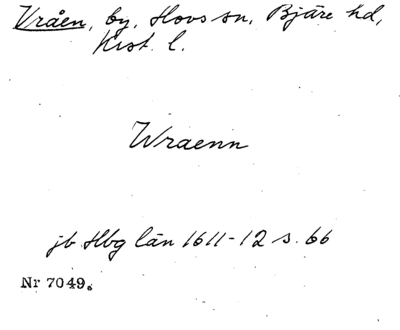 Vråen, by, Hovs sn, Bjäre hd,
Krist. l.
Wraenn
jb Hbg län 1611-12 s. 66
Nr 7049.